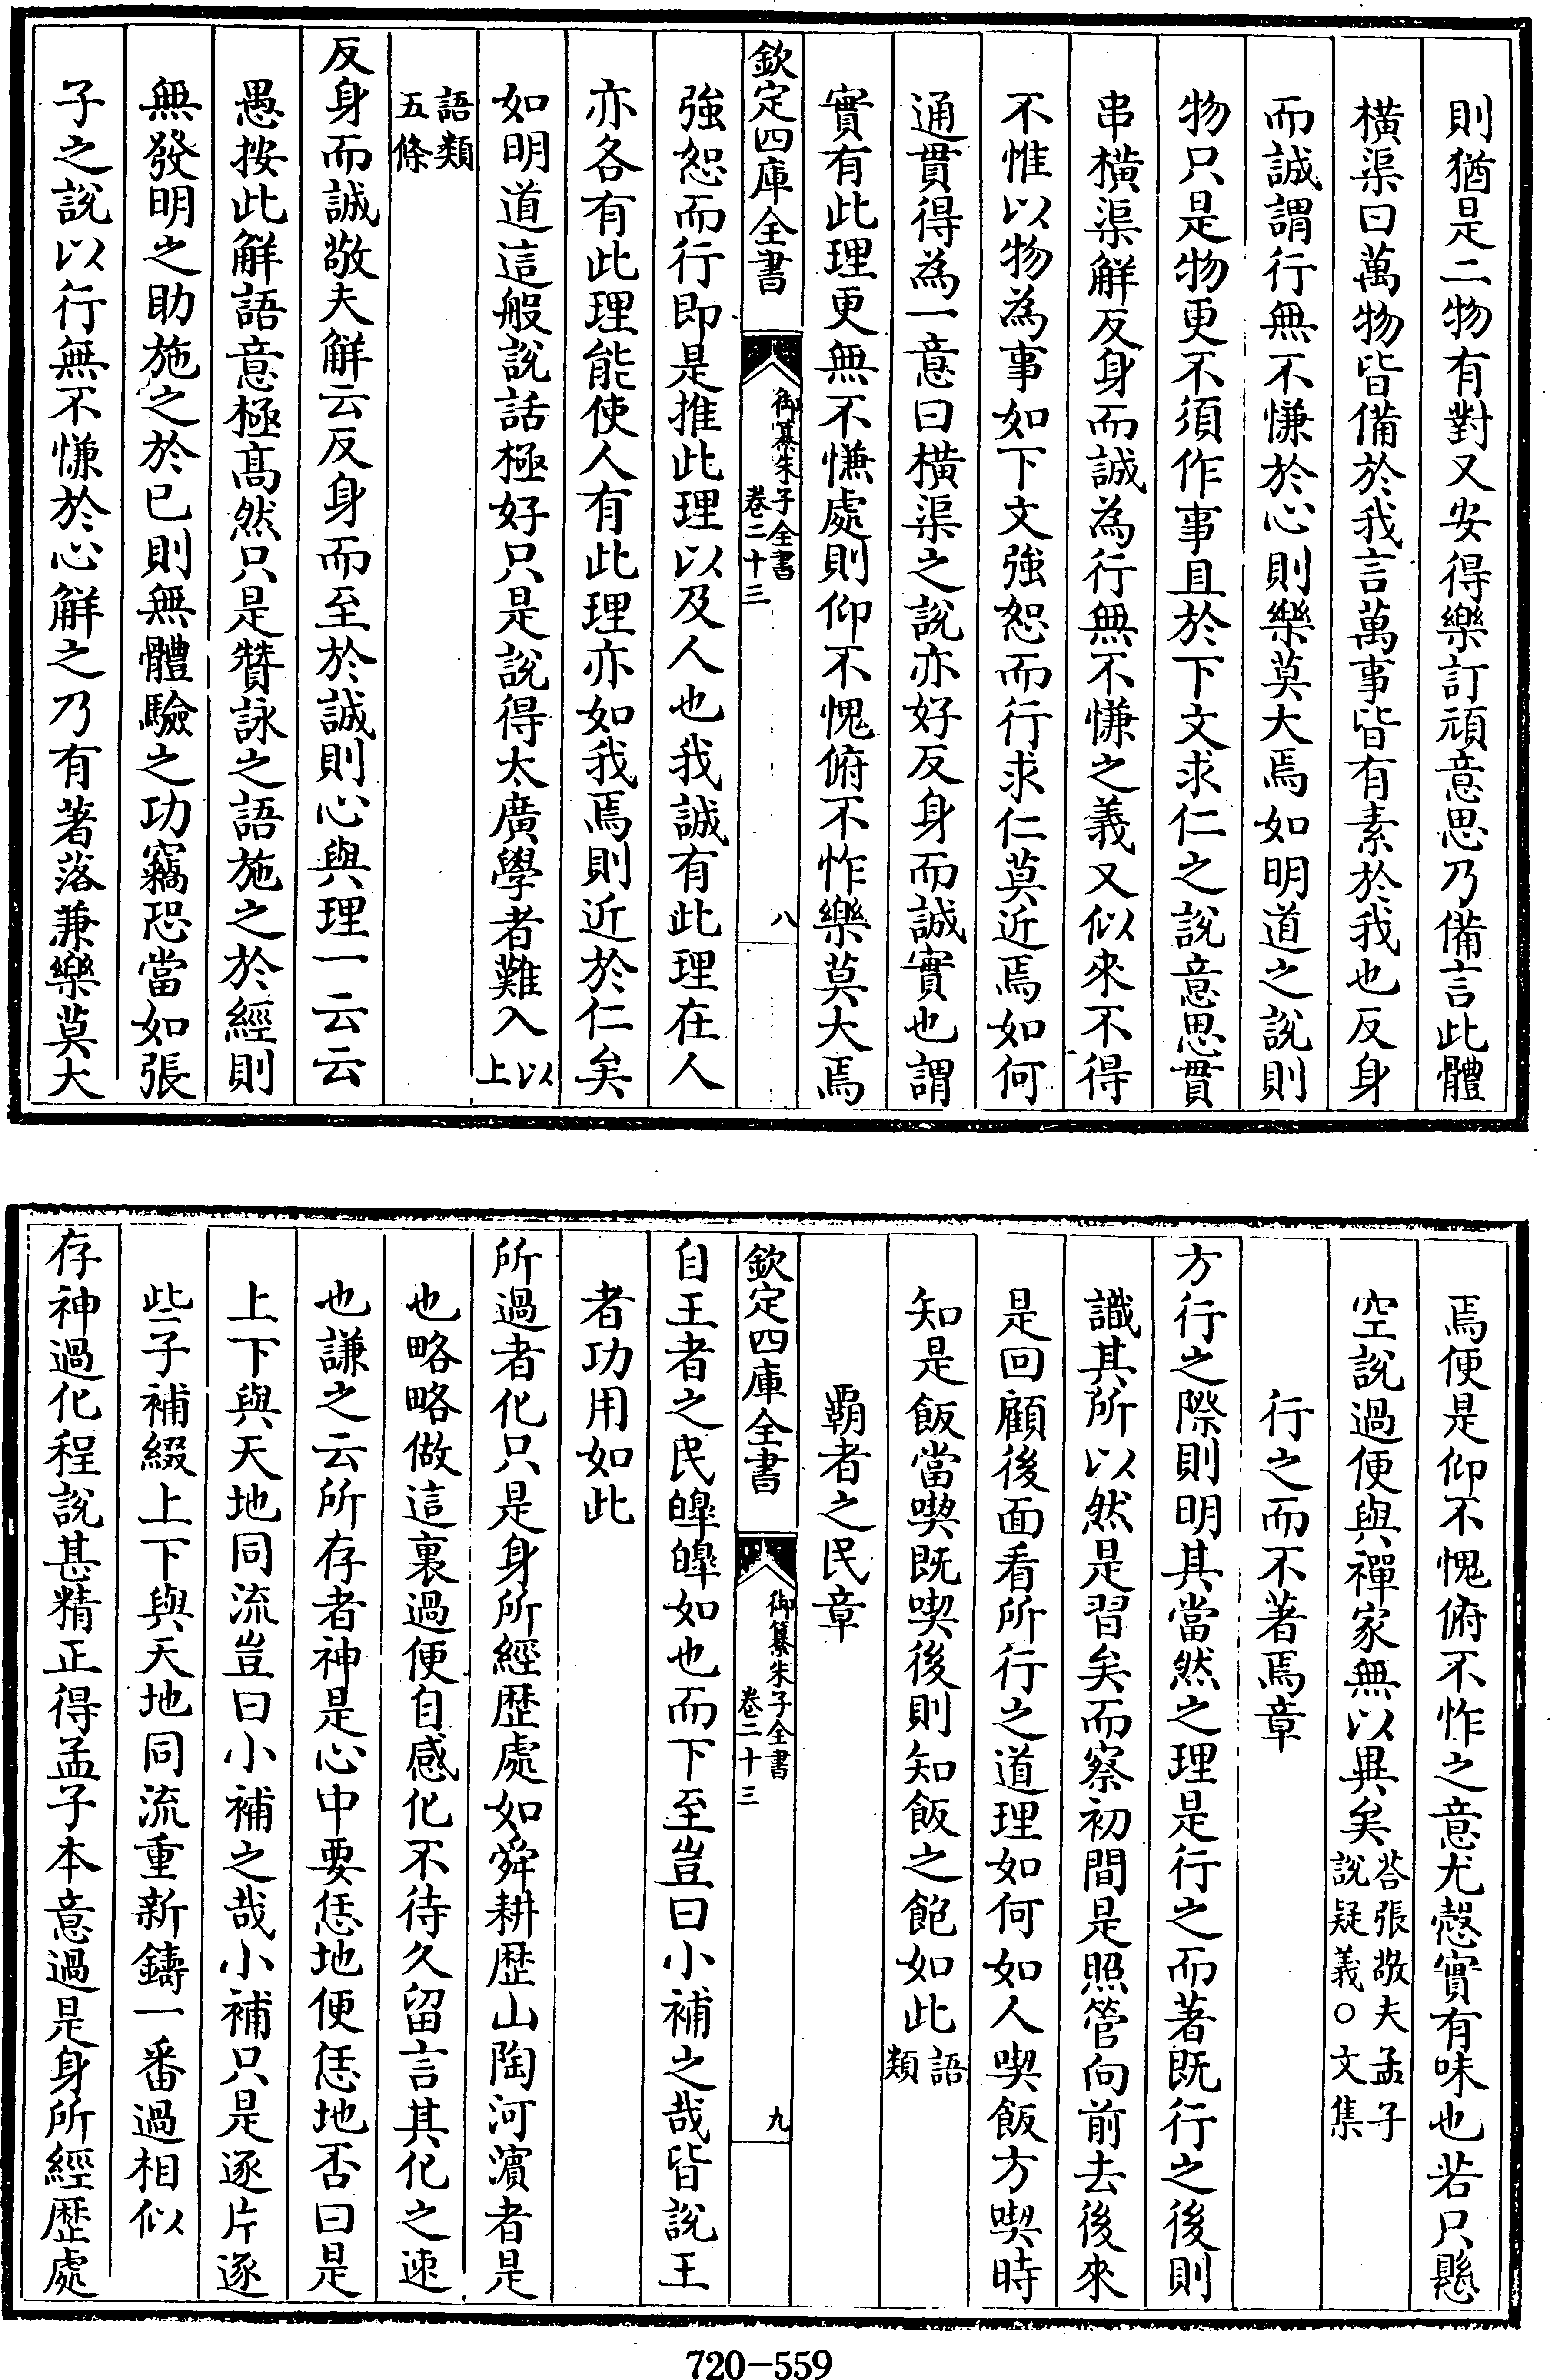 則猶是二物有對又安得樂訂頑意思乃備言此體
橫渠曰萬物皆備於我言萬事皆有素於我也反身
而誠謂行無不慊於心則樂莫大焉如明道之說則
物只是物更不須作事且於下文求仁之說意思貫
串橫渠解反身而誠為行無不慊之義又似來不得
不惟以物為事如下文強恕而行求仁莫近焉如何
通貫得為一意曰橫渠之說亦好反身而誠實也謂
實有此理更無不慊處則仰不愧俯不怍樂莫大焉
欽定四庫全書
御纂朱子全書
卷二十三
八
強恕而行即是推此理以及人也我誠有此理在人
亦各有此理能使人有此理亦如我焉則近於仁矣
如明道這般說話極好只是說得太廣學者難入以上
語類
五條
反身而誠敬夫解云反身而至於誠則心與理一云云
愚按此解語意極高然只是贊詠之語施之於經則
無發明之助施之於已則無體驗之功竊恐當如張
子之說以行無不慊於心解之乃有著落兼樂莫大
焉便是仰不愧俯不怍之意尤慤實有味也若只懸
空說過便與禪家無以異矣荅張敬夫孟子
說疑義○文集
行之而不著焉章
方行之際則明其當然之理是行之而著既行之後則
識其所以然是習矣而察初間是照管向前去後來
是回顧後面看所行之道理如何如人喫飯方喫時
知是飯當喫既喫後則知飯之飽如此語
類
覇者之民章
欽定四庫全書
御纂朱子全書
卷二十三
九
自王者之民皥皥如也而下至豈曰小補之哉皆說王
者功用如此
所過者化只是身所經歴處如舜耕歴山陶河濱者是
也略略做這裏過便自感化不待久留言其化之速
也謙之云所存者神是心中要恁地便恁地否曰是
上下與天地同流豈曰小補之哉小補只是逐片逐
些子補綴上下與天地同流重新鑄一番過相似
存神過化程說甚精正得孟子本意過是身所經歴處
720-559